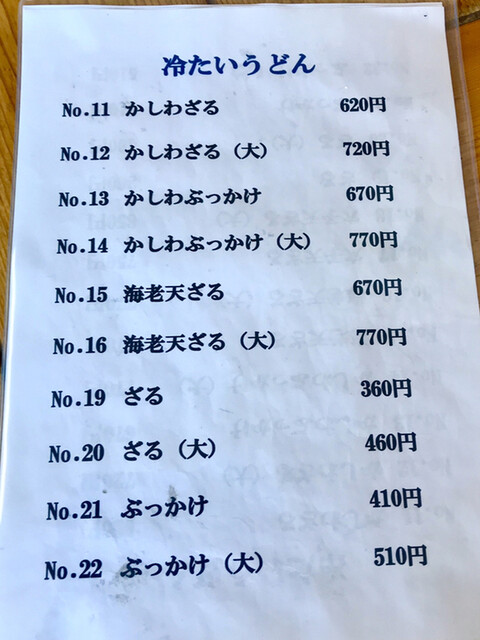 冷たいうどん
No.11 かしわざる 620円
No.12 かしわざる（大） 720円
No.13 かしわぶっかけ 670円
No.14 かしわぶっかけ（大） 770円
No.15 海老天ざる 670円
No.16 海老天ざる（大） 770円
No.19 ざる 360円
No.20 ざる（大） 460円
No.21 ぶっかけ 410円
No.22 ぶっかけ（大） 510円